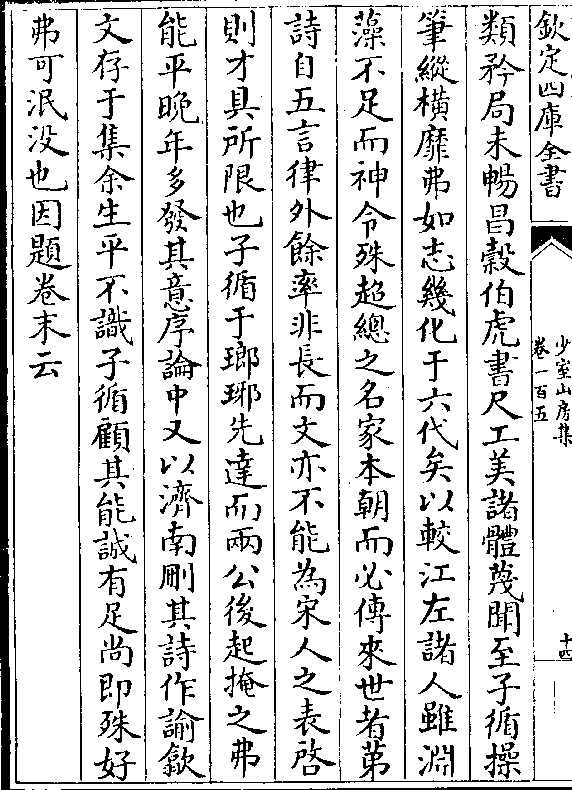 欽定四庫全書
少室山房集
卷一百五
十四
類矜局未暢昌穀伯虎書尺工美諸體蔑聞至子循操
筆縱橫靡弗如志幾化于六代矣以較江左諸人雖淵
藻不足而神令殊超總之名家本朝而必傳來世者苐
詩自五言律外餘率非長而文亦不能為宋人之表啓
則才具所限也子循于瑯琊先達而兩公後起掩之弗
能平晚年多發其意序論中又以濟南刪其詩作論歙
文存于集余生平不識子循顧其能誠有足尚即殊好
弗可泯没也因題卷末云